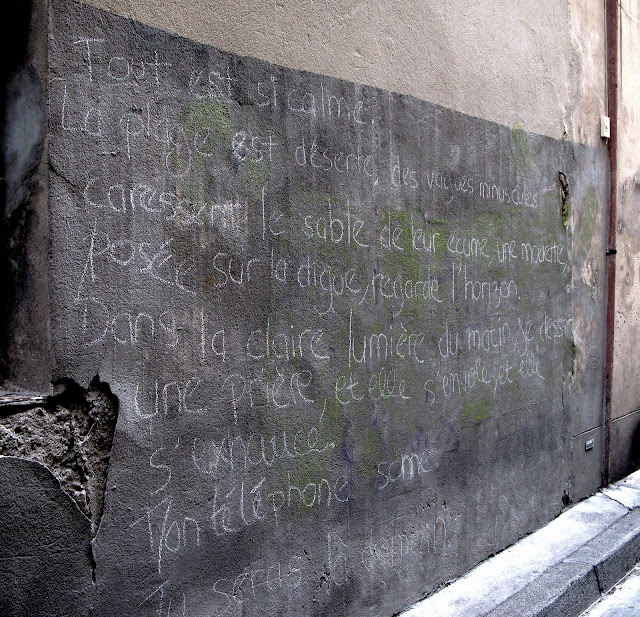 Tout est si calme.
La plage est déserte, des vagues minuscules
caressent le sable de leur écume, une mouette,
posée sur la digue, regarde l'horizon.
Dans la claire lumière du matin, je dessine
une prière, et elle s'envole, et elle
s'exhauce.
Mon téléphone sonne.
Tu seras là demain